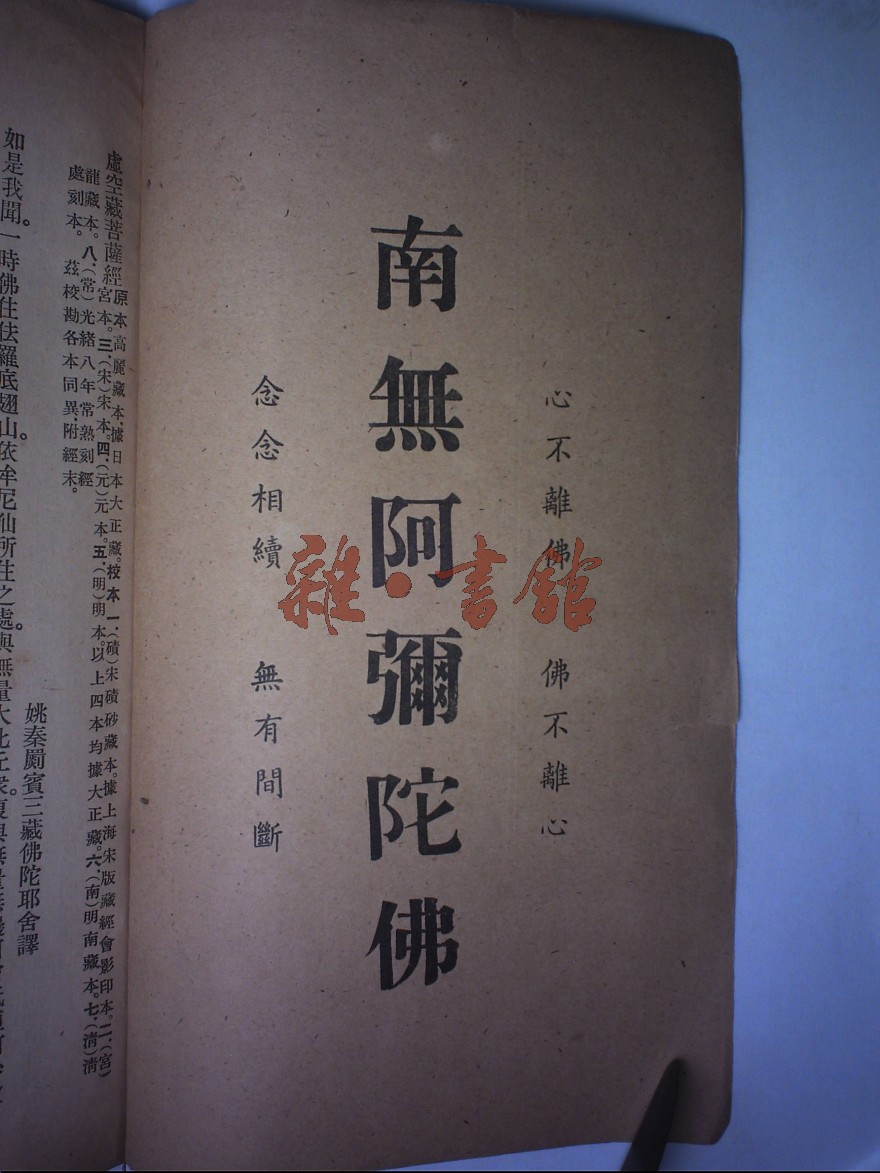 心不離佛 佛不離心
南無阿彌陀佛
念念相續 無有間斷
雜·書館
虛空藏菩薩經
原本高麗藏本據日本大正藏。校本一.(磧)宋磧砂藏本。據上海宋版藏經會影印本。二.(宮)
宮本。三.(宋)宋本。四.(元)元本。五.(明)明本。以上四本均據大正藏。六.(南)明南藏本。七.(清)清
龍藏本。八.(常)光緒八年常熟刻經
處刻本。茲校勘各本同異.附經末。
姚秦罽賓三藏佛陀耶舍譯
如是我聞。一時佛住佉羅底翅山。依牟尼仙所住之處。與無量大比丘眾